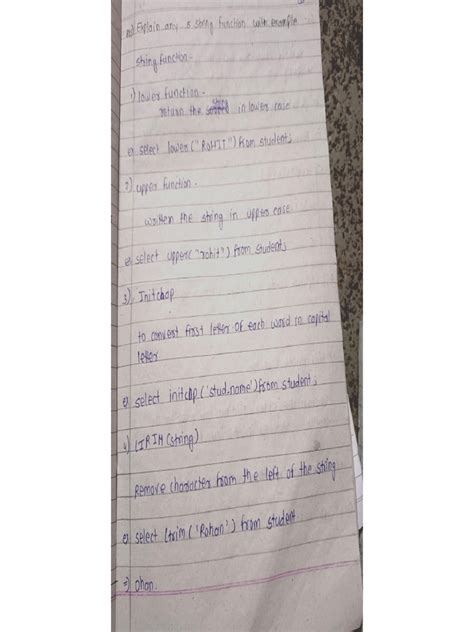 Explain any 8 string function with example
string function.
1) lower function.
return the string in lower case
ex select lower ("ROHIT") from student;
2) upper function.
written the string in upper case
ex select upper( "rohit") from student;
3) Initcap
to convert first letter of each word in capital
letter
ex select initcap ('stud_name') from student;
4) LTRIM (string)
Remove character from the left of the string
ex select ltrim ('Rohan') from student
=) ohan.